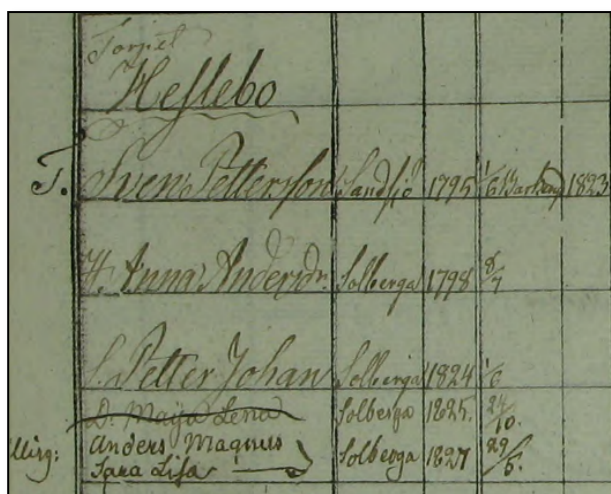 Torpet
Heslebo
T. Sven Pettersson Sandsjö 1795 1/6 1823
H. Anna Andersdr. Solberga 1798 8/7
S. Petter Johan Solberga 1824 1/6
D. Maija Lena Solberga 1825. 24/10.
Anders Magnus Solberga 1827 29/5.
Sara Lisa